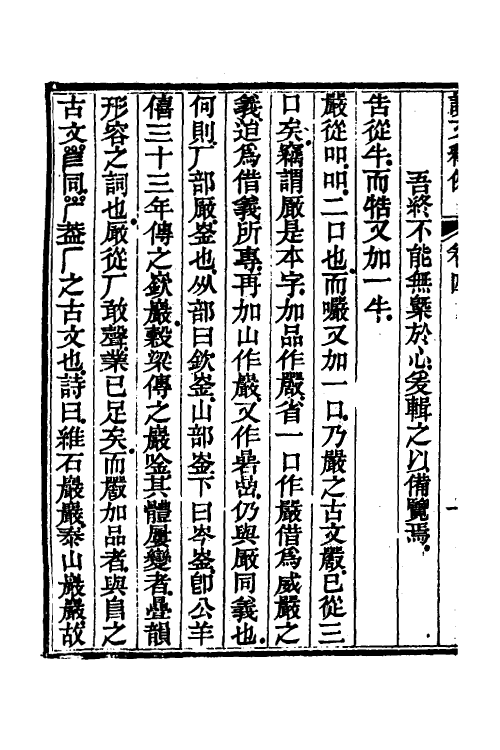 說文釋例　卷四　一
吾終不能無槩於心爰輯之以備覽焉
吿從牛而牿又加一牛
嚴從吅吅二口也而㘙又加一口乃嚴之古文嚴已從三
口矣竊謂厰是本字加品作嚴省一口作嚴借爲威嚴之
義迫爲借義所專再加山作巖又作碞嵒仍與厰同義也
何則厂部厰崟也部曰欽崟山部崟下曰岑崟卽公羊
僖三十三年傳之嶔巖穀梁傳之巖唫其體屢變者疊韻
形容之詞也厰從厂敢聲業已足矣而嚴加品者與𠂤之
古文同蓋厂之古文也詩曰維石巖巖泰山巖巖故